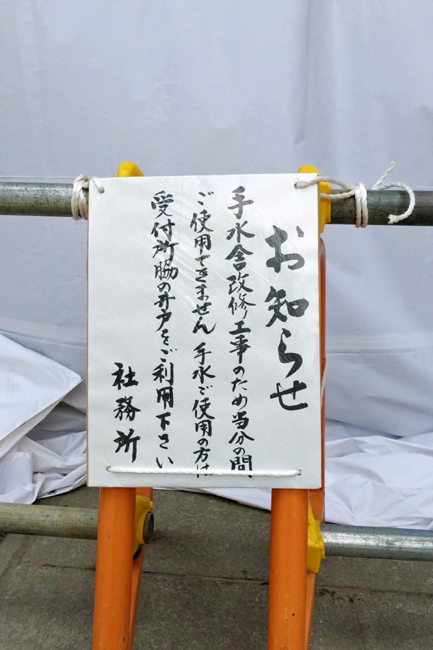 お知らせ
手水舎改修工事のため当分の間、
ご使用できません 手水ご使用の方は
受付所脇の井戸をご利用下さい
社務所